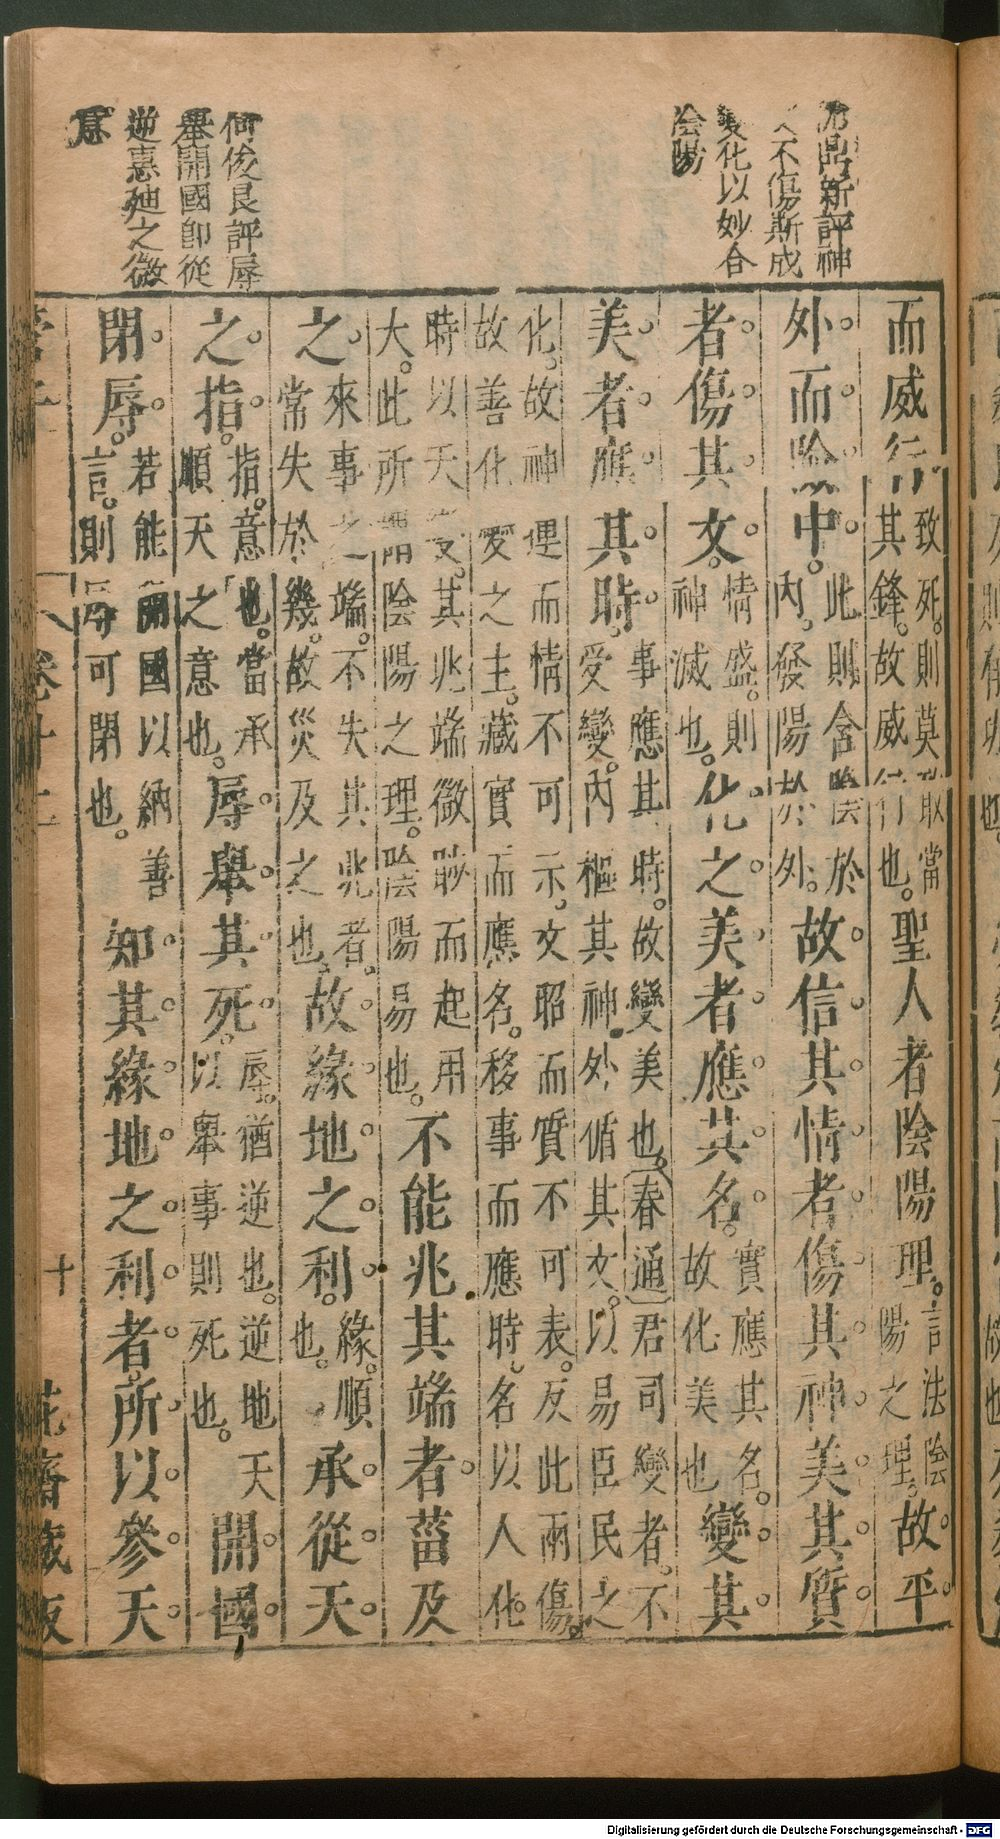 沈鼎新評神
文不傷斯成
變化以妙合
陰陽
何俊良評辱
舉開國卽從
逆惠廸之微
意
而威行致死。則莫敢當其鋒。故威行也。聖人者陰陽理。言法陰陽之理。故平
外而險中。此則含陰於內。發陽於外。故信其情者傷其神美其質
者傷其文。情盛。則神滅也。化之美者應其名。實應其名。故化美也變其
美者應其時。事應其時。故變美也。〔春通〕君司變者。不受變。內樞其神外循其文。以易臣民之
化。故神運而情不可示。文昭而質不可表。反此兩傷。故善化變之主。藏實而應名。移事而應時。名以人化。
時以天變。其兆端微眇而起用大。此所謂陰陽之理。陰陽易也。不能兆其端者菑及
之。來事之端。不失其兆者。常失於幾。故災及之也。故緣地之利。緣。順也。承從天
之指。指。意也。當承順天之意也。辱舉其死。辱。猶逆也。逆地天以舉事則死也。開國
閉辱。若能開國以納善言。則辱可閉也。知其緣地之利者。所以參天
管子 卷十二 十 花齋藏板
Digitalisierung gefördert durch die Deutsche Forschungsgemeinschaft - DFG